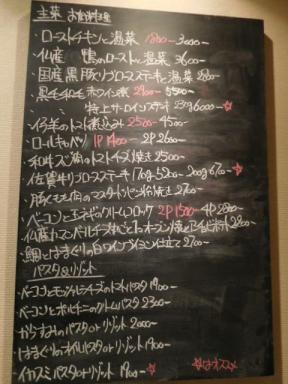 主菜 お肉料理
・ローストチキンと温菜 1800- 3000-
・仏産 鴨のローストと温菜 3600-
・国産黒豚リブロースステーキと温菜 2800-
・黒毛和牛 赤ワイン煮 2900- 5500-
特上サーロインステーキ 230g 6000- ☆
・仔羊のトマト煮込み 2500- 4500-
・ロールキャベツ 1P 1400- 2P 2600-
・和牛スジ肉のトマトチーズ焼き 2500
・佐賀牛リブロースステーキ 170g 5200- 200g 6700- ☆
・豚もも肉のマスタードパン粉焼き 2700-
・ベーコンと玉ネギのクリームコロッケ 2P 1500- 4P 2800-
・鯛とはまぐりの白ワインブイヨン仕立て 2700-
パスタ&リゾット
・ベーコンとモッツァレラチーズのトマトパスタ 1900-
・ベーコンとポルチーニのクリームパスタ 2300-
・からすみのパスタorリゾット 2000-
・はまぐりのオイルパスタorリゾット 1900-
・イカスミパスタorリゾット 1900- ☆
☆はオススメ